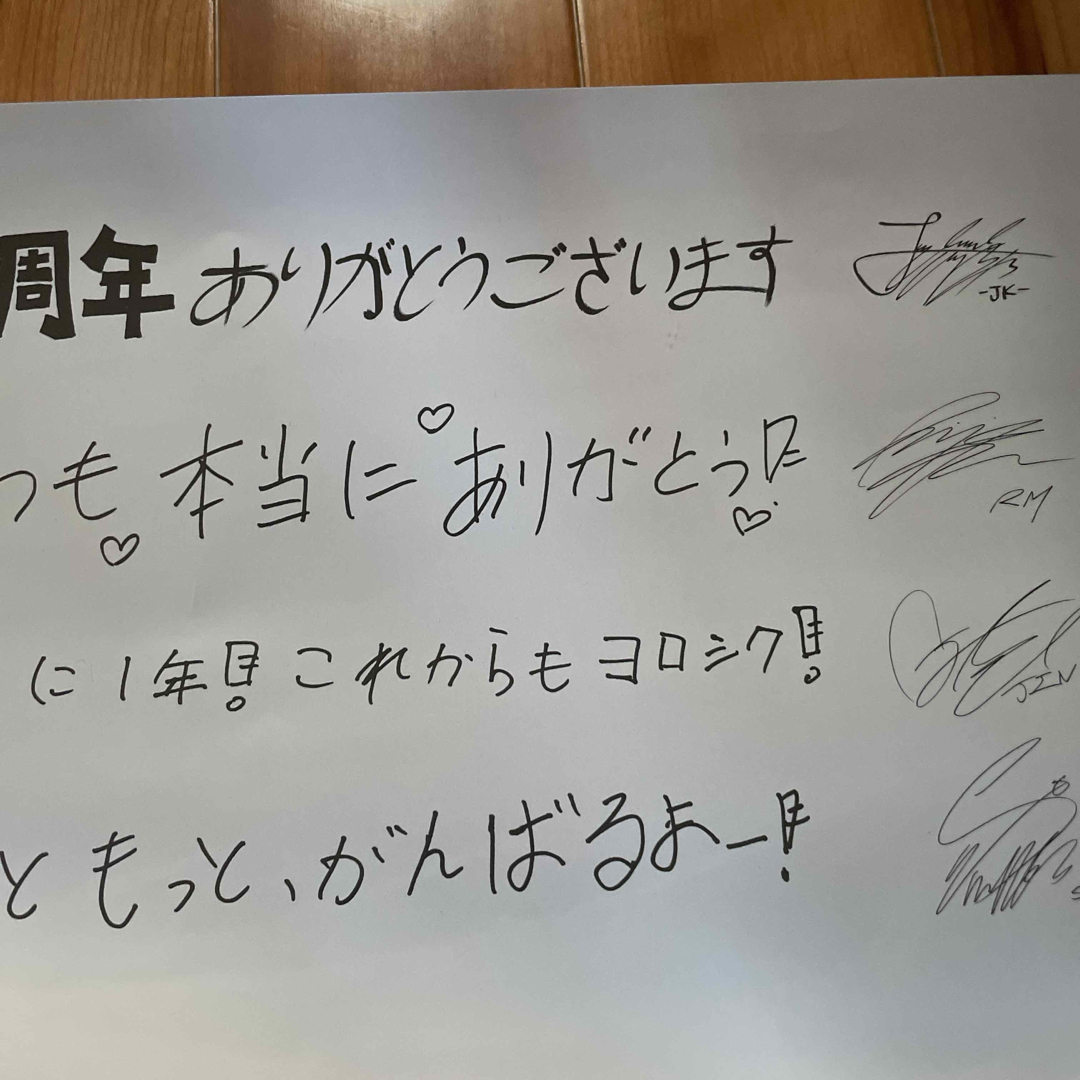 周年ありがとうございます
-JK-
つも本当に♡ありがとう!!
♡ ♡
RM
に1年!これからもヨロシク!
JIN
ともっと、がんばるよー!